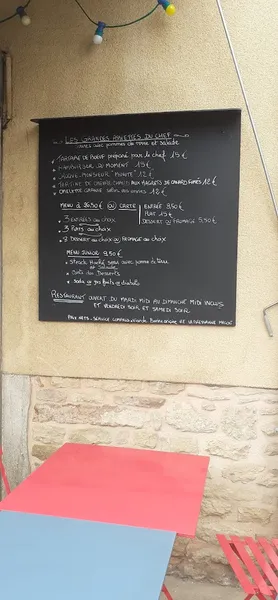 LES GRANDES ASSIETTES DU CHEF
servies avec pommes de terre et salade
TARTARE DE BOEUF préparé par le chef 15 €
HAMBURGER DU MOMENT 15 €
MONSIEUR 12 €
TERRINE DE CANARD AUX MAGRETS DE CANARD FUMÉS 12 €
OMELETTE GÉANTE selon des envies 12 €
MENU à 26,50 € OU CARTE
ENTRÉE 8,50 €
PLAT 15 €
DESSERT OU FROMAGE 5,50 €
3 ENTRÉES au choix
3 PLATS au choix
3 DESSERT au choix OU FROMAGE au choix
MENU JUNIOR 9,50 €
Steack Haché servi avec pomme de terre
et Salade
Café des Desserts
soda ou jus fruits ou diabolo
RESTAURANT OUVERT DU MARDI MIDI AU DIMANCHE MIDI INCLUS
ET VENDREDI SOIR ET SAMEDI SOIR
PRIX NETS - SERVICE COMPRIS